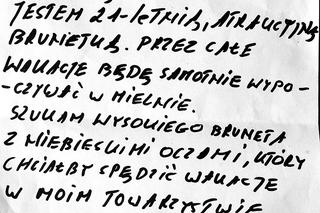 JESTEM 21-LETNIĄ, ATRAKCYJNĄ
BRUNETKĄ. PRZEZ CAŁE
WAKACJE BĘDĘ SAMOTNIE WYPO-
-CZYWAĆ W MIELNIE.
SZUKAM WYSOKIEGO BRUNETA
Z NIEBIESKIMI OCZAMI, KTÓRY
CHCIAŁBY SPĘDZIĆ WAKACJE
W MOIM TOWARZYSTWIE